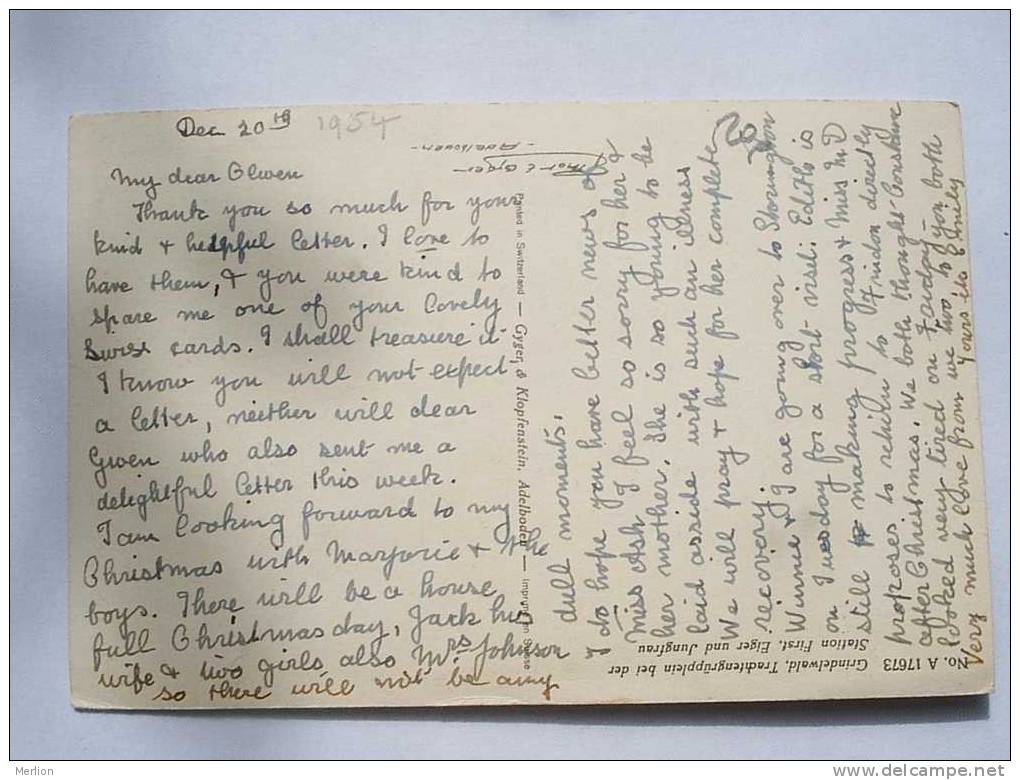 Dec 20th 1954
My dear Olwen
Thank you so much for your
kind & helpful letter. I love to
have them, & you were kind to
spare me one of your lovely
Swiss cards. I shall treasure it
I know you will not expect
a letter, neither will dear
Gwen who also sent me a
delightful letter this week.
I am looking forward to my
Christmas with Marjorie & the
boys. There will be a house
full Christmas day, Jack his
wife & two girls also Mrs Johnson
so there will not be any
dull moments.
I do hope you have better news of
Miss Ash I feel so sorry for her &
her mother. She is so young to be
laid asside with such an illness
We will pray & hope for her complete
recovery.
Winnie & I are going over to Storrington
on Tuesday for a short visit. Edith is
still making progress & Miss M.D
proposes to return to Findon directly
after Christmas. We both thought Constance
looked very tired on Friday. you both
Very much love from we two to
Yours etc Emily
- Adelboden -
Printed in Switzerland — Gyger & Klopfenstein, Adelboden — Imprimé en Suisse
No. A 17673
Grindelwald, Trachtengrüpplein bei der
Station First, Eiger und Jungfrau
Merlion
delcampe.net